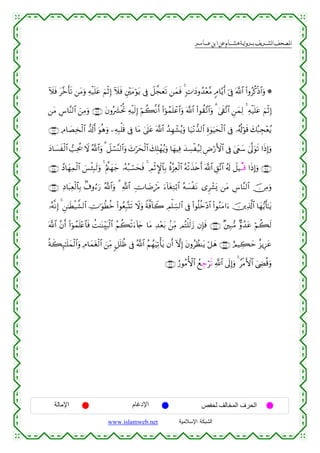 المصحف الشريف برواية هشام عن ابن عامر
۞ وَاذْكُرُوا۟ اللَّهَ فِىٓ أَيَّامٍ مَّعْدُودَٰتٍ فَمَن تَعَجَّلَ فِى يَوْمَيْنِ فَلَآ إِثْمَ عَلَيْهِ وَمَن تَأَخَّرَ فَلَآ
إِثْمَ عَلَيْهِ لِمَنِ اتَّقَىٰ وَاتَّقُوا۟ اللَّهَ وَاعْلَمُوٓا۟ أَنَّكُمْ إِلَيْهِ تُحْشَرُونَ ۝ وَمِنَ النَّاسِ مَن
يُعْجِبُكَ قَوْلُهُۥ فِى الْحَيَوٰةِ الدُّنْيَا وَيُشْهِدُ اللَّهَ عَلَىٰ مَا فِى قَلْبِهِۦ وَهُوَ أَلَدُّ الْخِصَامِ ۝
وَإِذَا تَوَلَّىٰ سَعَىٰ فِى الْأَرْضِ لِيُفْسِدَ فِيهَا وَيُهْلِكَ الْحَرْثَ وَالنَّسْلَ وَاللَّهُ لَا يُحِبُّ الْفَسَادَ
۝ وَإِذَا قِيلَ لَهُ اتَّقِ اللَّهَ أَخَذَتْهُ الْعِزَّةُ بِالْإِثْمِ فَحَسْبُهُۥ جَهَنَّمُ وَلَبِئْسَ الْمِهَادُ ۝
وَمِنَ النَّاسِ مَن يَشْرِى نَفْسَهُ ابْتِغَآءَ مَرْضَاتِ اللَّهِ وَاللَّهُ رَءُوفٌ بِالْعِبَادِ ۝
يَٰٓأَيُّهَا الَّذِينَ ءَامَنُوا۟ ادْخُلُوا۟ فِى السِّلْمِ كَآفَّةً وَلَا تَتَّبِعُوا۟ خُطُوَٰتِ الشَّيْطَٰنِ إِنَّهُۥ
لَكُمْ عَدُوٌّ مُّبِينٌ ۝ فَإِن زَلَلْتُم مِّنۢ بَعْدِ مَا جَآءَتْكُمُ الْبَيِّنَٰتُ فَاعْلَمُوٓا۟ أَنَّ اللَّهَ
عَزِيزٌ حَكِيمٌ ۝ هَلْ يَنظُرُونَ إِلَّآ أَن يَأْتِيَهُمُ اللَّهُ فِى ظُلَلٍ مِّنَ الْغَمَامِ وَالْمَلَٰٓئِكَةُ
وَقُضِىَ الْأَمْرُ وَإِلَى اللَّهِ تَرْجِعُ الْأُمُورُ ۝
الحرف المخالف لحفص الإدغام الإمالة
الشبكة الإسلامية www.islamweb.net